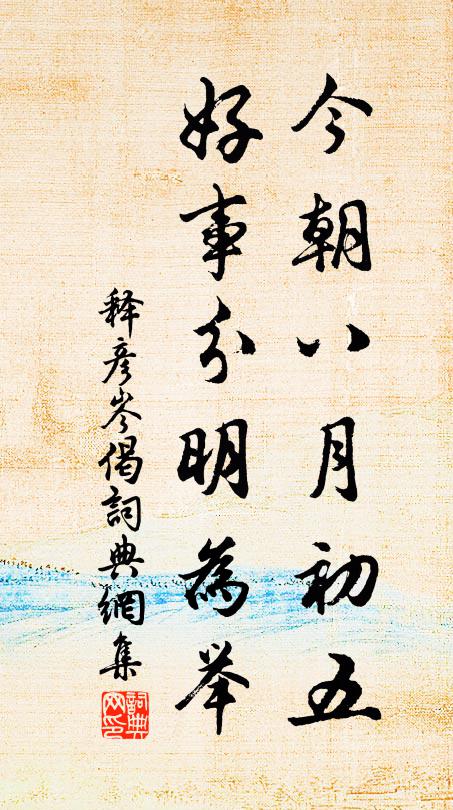 今朝八月初五
好事分明為举
释彦岑偈詞典網集
詞典网印